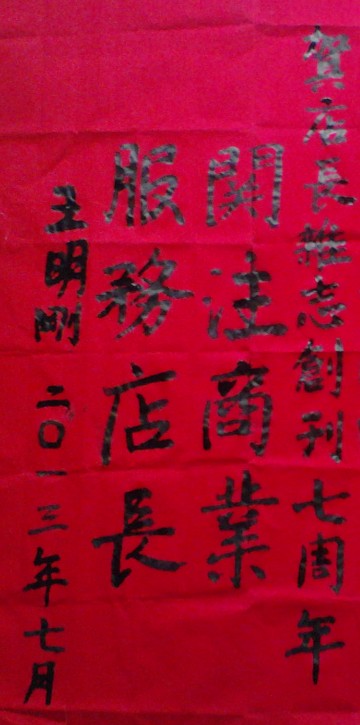 賀店長雜志創刊七周年
開注商業
服務店長
王明剛 二〇一三年七月